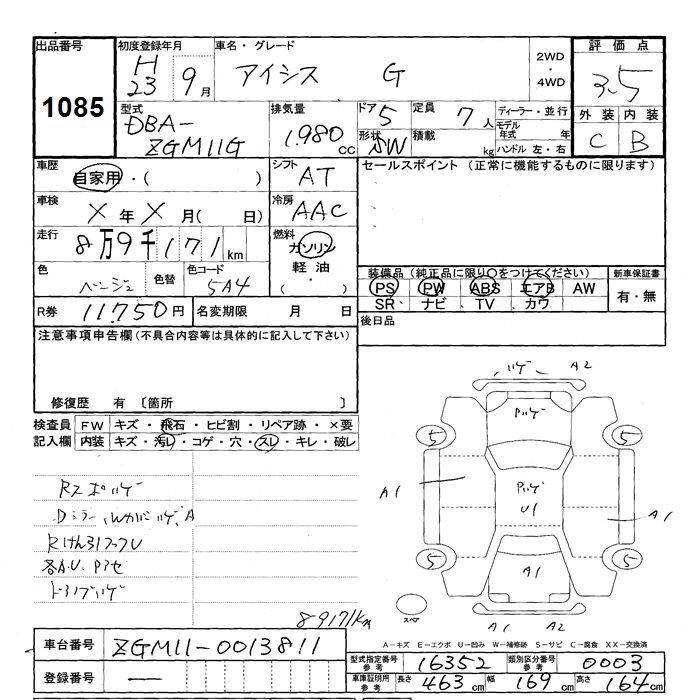 出品番号 初度登録年月 車名・グレード 2WD・4WD 評価点
1085 H23 9月 アイシス G 3.5
型式 排気量 ドア 5 定員 7人 ディーラー・並行 外装 内装
DBA-ZGM11G 1.980cc 形状 SW 積載 kg モデル年式 年 ハンドル 左・右 C B
車歴 自家用・( ) シフト AT セールスポイント(正常に機能するものに限ります)
車検 X年X月( 日) 冷房 AAC
走行 8万9千171km 燃料 ガソリン
軽油
・( )
色 ベージュ 色替 色コード 5A4
装備品(純正品に限り○をつけてください) 新車保証書
PS PW ABS エアB AW 有・無
SR ナビ TV カワ
R券 11.750円 名変期限 月 日 後日品
注意事項申告欄(不具合内容等は具体的に記入して下さい)
修復歴 有 〔箇所 〕
検査員 FW キズ・飛石・ヒビ割・リペア跡・×要
記入欄 内装 キズ・汚レ・コゲ・穴・スレ・キレ・破レ
ハゲ A2
Pハゲ
5 5
A1 Pハゲ
U1 A1
5 5
A1
スペア A1 A2
各A.U. Pアセ
89171km
A-キズ E-エクボ U-凹み W-補修跡 S-サビ C-腐食 XX-交換済
車台番号 ZGM11-0013811
型式指定番号 参考 16352 類別区分番号 参考 0003
登録番号 — 車庫証明用 参考 長さ 463cm 幅 169cm 高さ 164cm